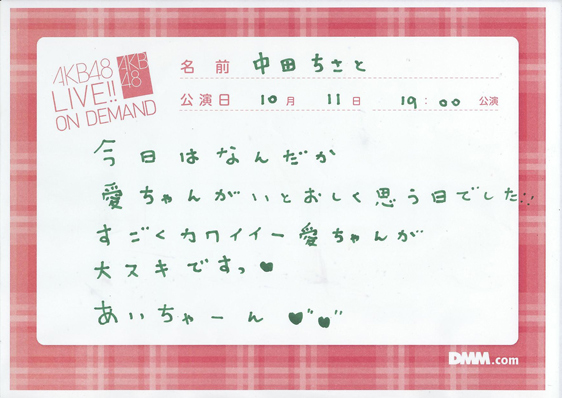 AKB48
LIVE!!
ON DEMAND
AKB
48
名前 中田ちさと
公演日 10月 11日 19:00 公演
今日はなんだか
愛ちゃんがいとおしく思う日でした!!
すごくカワイイー愛ちゃんが
大スキですっ♥
あいちゃーん♥"♥"
DMM.com